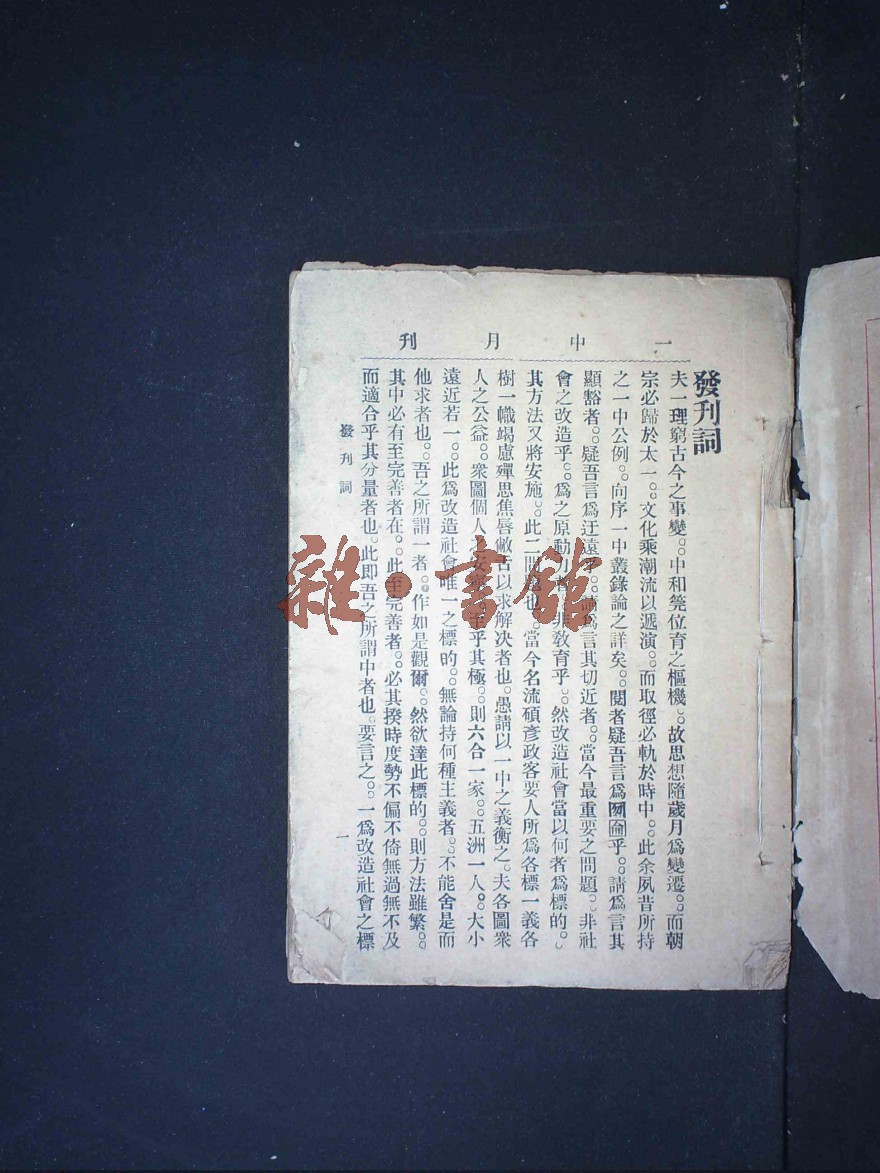 一中月刊
發刊詞
夫一理窮古今之事變。。中和筦位育之樞機。。故思想隨歲月爲變遷。。而朝
宗必歸於太一。。文化乘潮流以遞演。。而取徑必軌於時中。。此余夙昔所持
之一中公例。。向序一中叢錄論之詳矣。。閱者疑吾言爲圀圇乎。。請爲言其
顯豁者。。疑吾言爲迂遠乎。。請爲言其切近者。。當今最重要之問題。。非社
會之改造乎。。爲之原動力者。。非教育乎。。然改造社會當以何者爲標的。。
其方法又將安施。。此二問題也。。當今名流碩彥政客要人所爲各標一義各
樹一幟竭慮殫思焦唇敝舌以求解决者也。愚請以一中之義衡之。夫各圖衆
人之公益。。衆圖個人之安寧。。至乎其極。。則六合一家。。五洲一人。。大小
遠近若一。。此爲改造社會唯一之標的。。無論持何種主義者。。不能舍是而
他求者也。。吾之所謂一者。。作如是觀爾。。然欲達此標的。。則方法雖繁。。
其中必有至完善者在。。此至完善者。。必其揆時度勢不偏不倚無過無不及
而適合乎其分量者也。此即吾之所謂中者也。要言之。。一爲改造社會之標
發刊詞
一
雜·書館